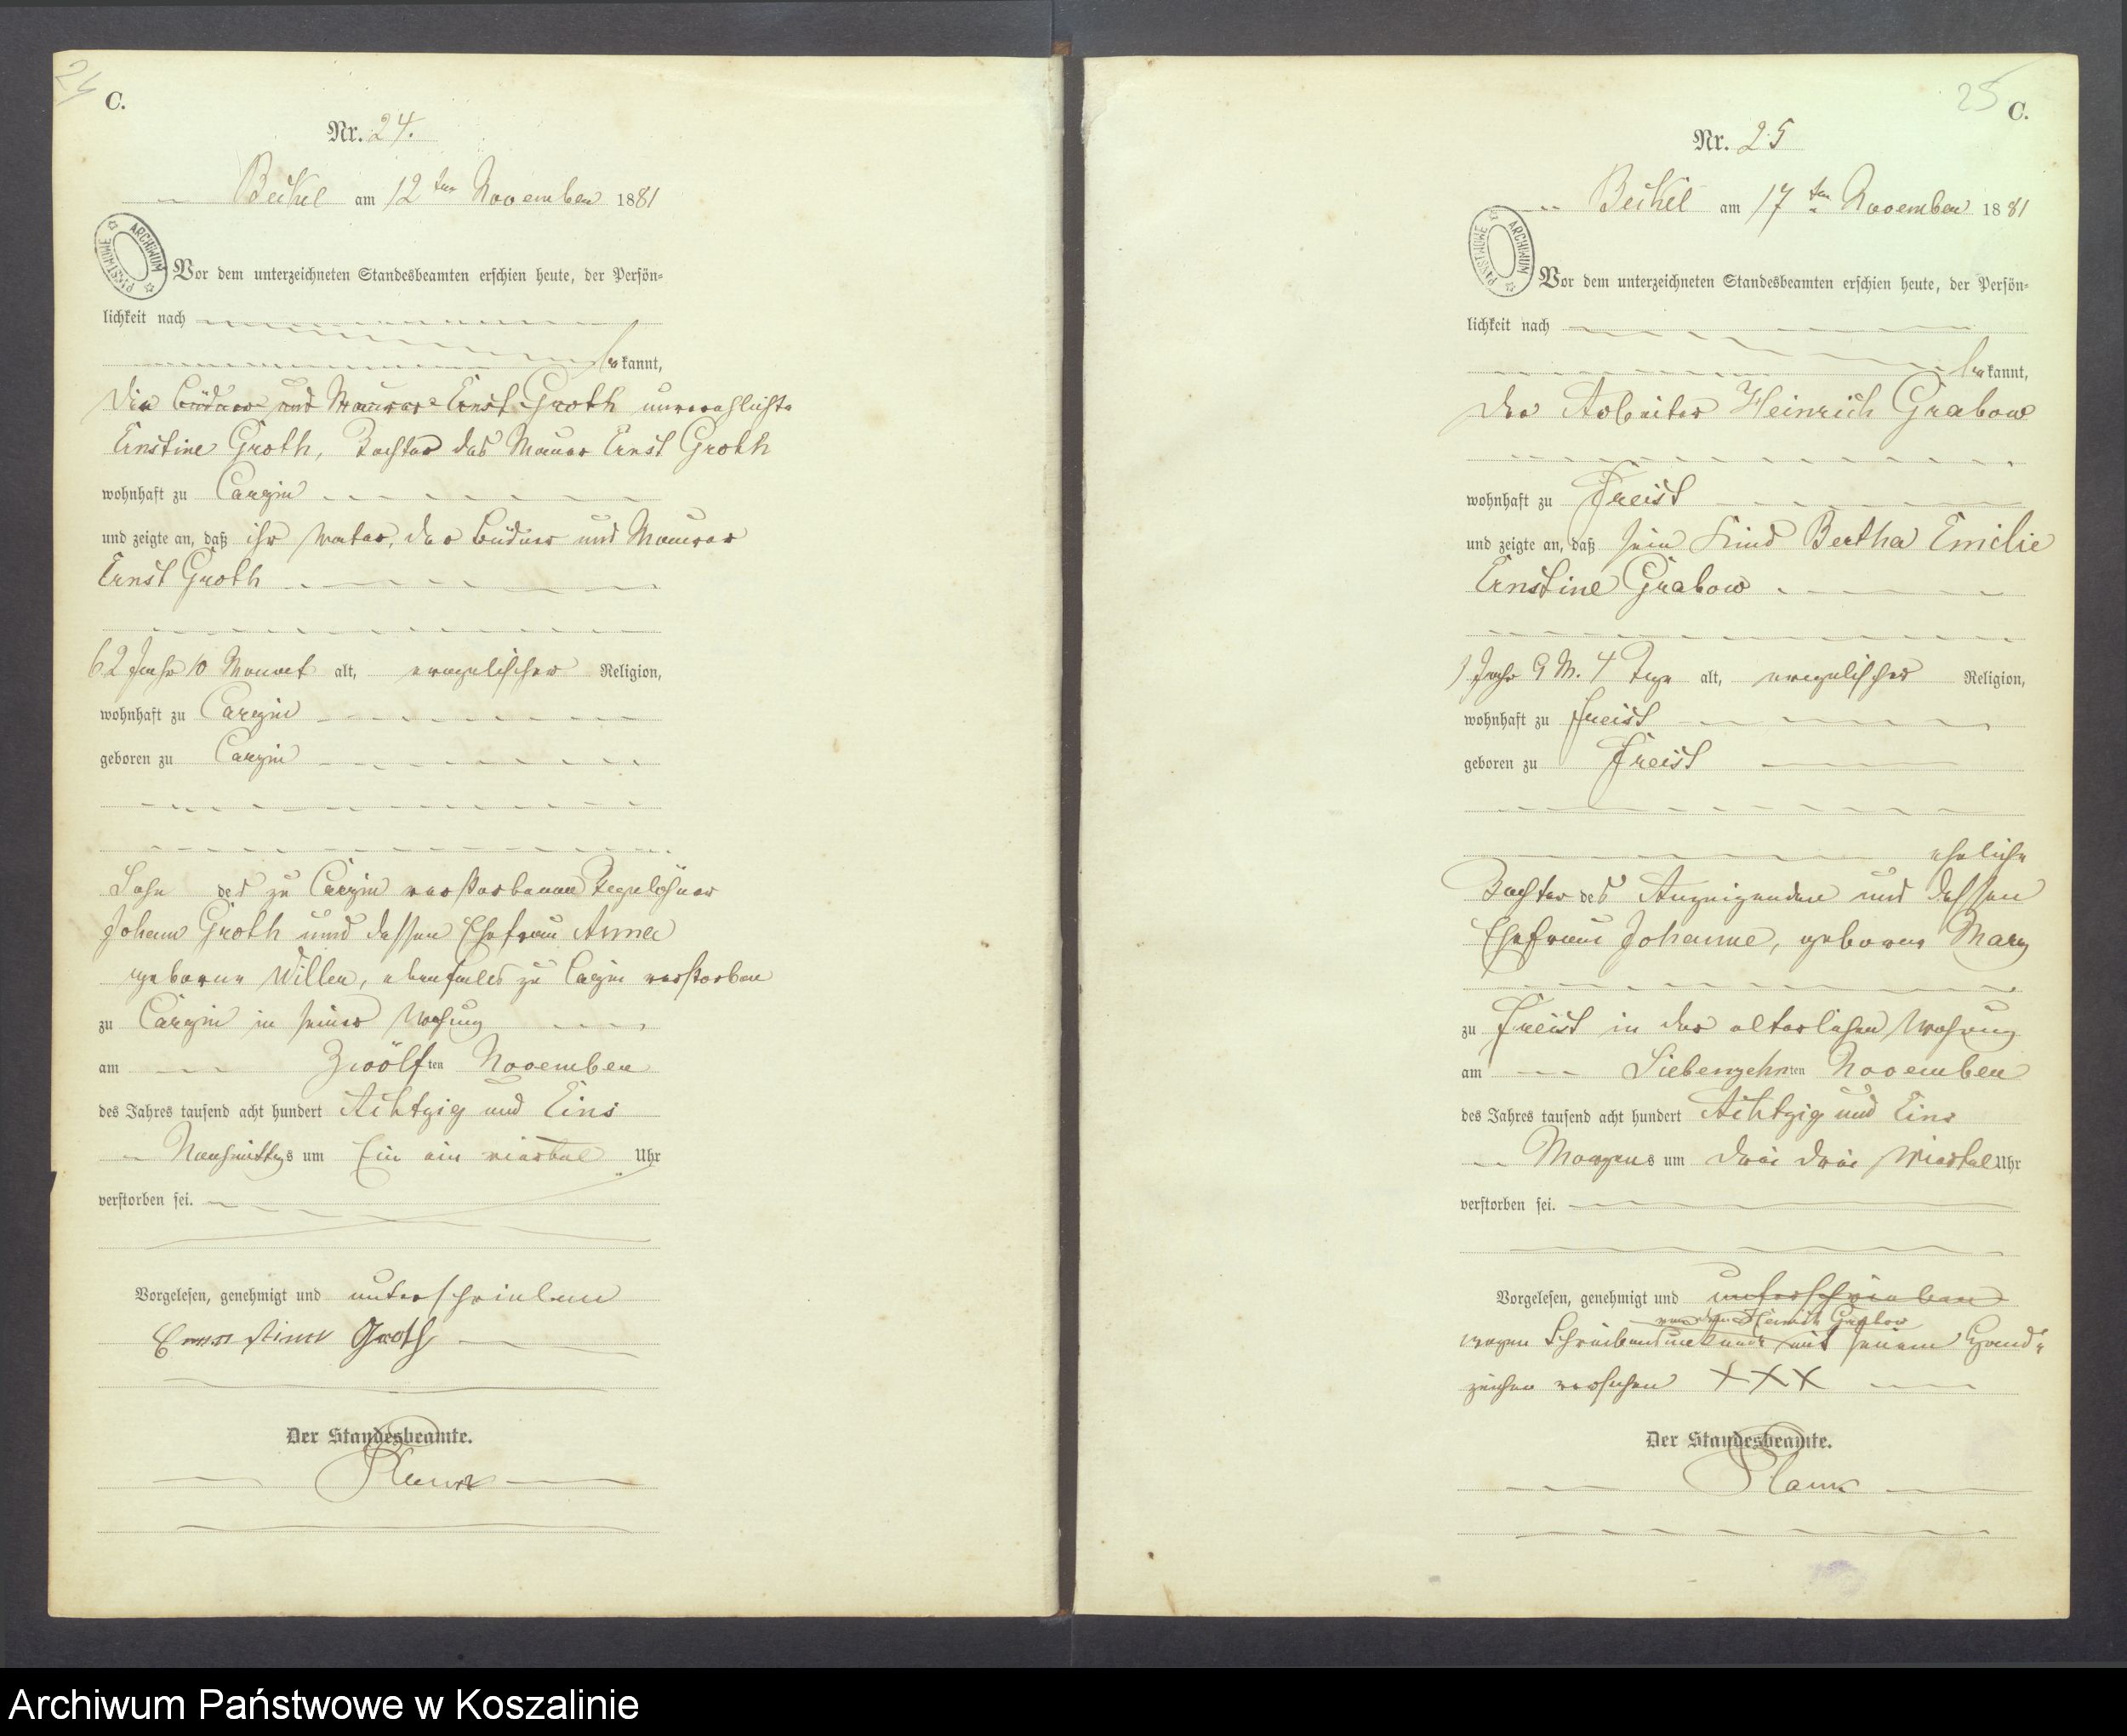 24
C.
Nr. 24.
Beckel am 12ten November 1881
ARCHIWUM PAŃSTWOWE
Vor dem unterzeichneten Standesbeamten erschien heute, der Persön-
lichkeit nach
be kannt,
die Büdner und Maurer Ernst Groth unverehelichte
Ernstine Groth, Tochter des Maurer Ernst Groth
wohnhaft zu Carzin
und zeigte an, daß ihr Vater, der Büdner und Maurer
Ernst Groth
62 Jahr 10 Monat alt, evangelischer Religion,
wohnhaft zu Carzin
geboren zu Carzin
Sohn des zu Carzin verstorbenen Tagelöhner
Johann Groth und dessen Ehefrau Anna
geborne Willer, ebenfalls zu Carzin verstorben
zu Carzin in seiner Wohnung
am Zwölften November
des Jahres tausend acht hundert Achtzig und Eins
Nachmittags um Ein ein viertel Uhr
verstorben sei.
Vorgelesen, genehmigt und unterschrieben
Ernestine Groth
Der Standesbeamte.
25
C.
Nr. 25
Beckel am 17ten November 1881
ARCHIWUM PAŃSTWOWE
Vor dem unterzeichneten Standesbeamten erschien heute, der Persön-
lichkeit nach
be kannt,
der Arbeiter Heinrich Grabow
wohnhaft zu Freist
und zeigte an, daß sein Kind Bertha Emilie
Ernstine Grabow
1 Jahr 9 M. 4 Tage alt, evangelischer Religion,
wohnhaft zu Freist
geboren zu Freist
eheliche
Tochter des Anzeigenden und dessen
Ehefrau Johanne, geborne Marz
zu Freist in der elterlichen Wohnung
am Siebenzehnten November
des Jahres tausend acht hundert Achtzig und Eins
Morgens um drei drei Viertel Uhr
verstorben sei.
Vorgelesen, genehmigt und unterschrieben
von dem Heinrich Grabow
wegen Schreibensunkunde mit seinem Hand-
zeichen versehen XXX
Der Standesbeamte.
Archiwum Państwowe w Koszalinie